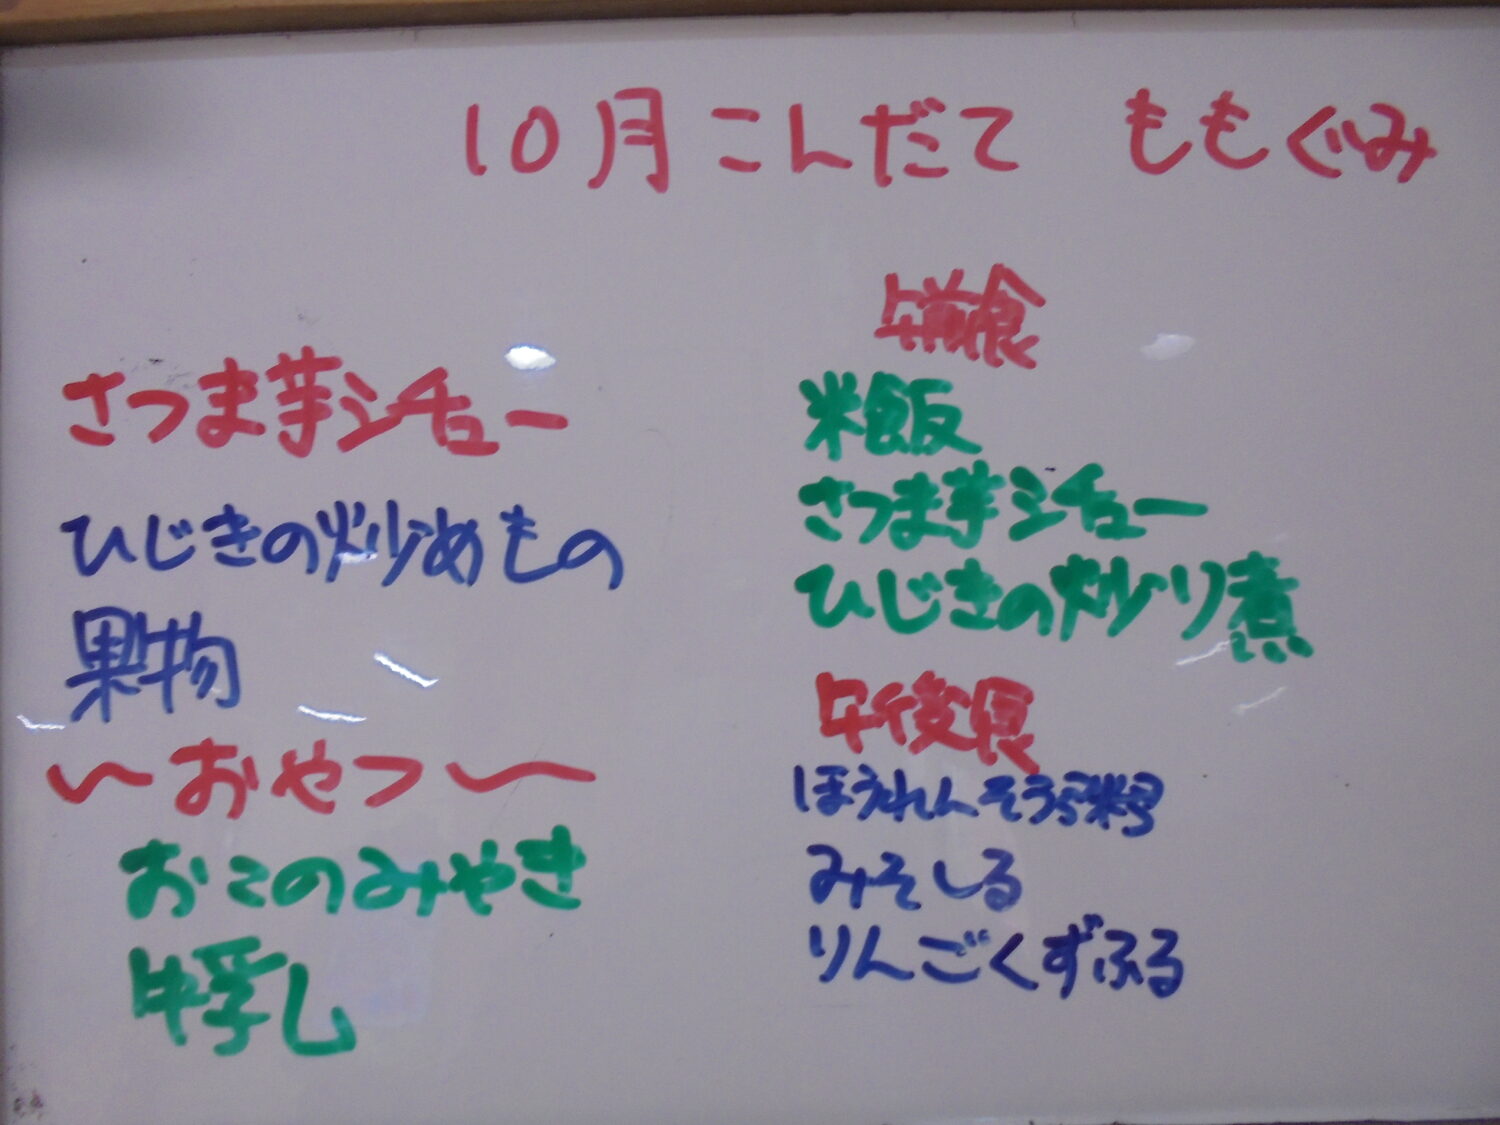 10月 こんだて ももぐみ
さつま芋シチュー
ひじきの炒めもの
果物
〜おやつ〜
おこのみやき
牛乳
午前食
米飯
さつま芋シチュー
ひじきの炒り煮
午後食
ほうれんそう粥
みそしる
りんごくずふる